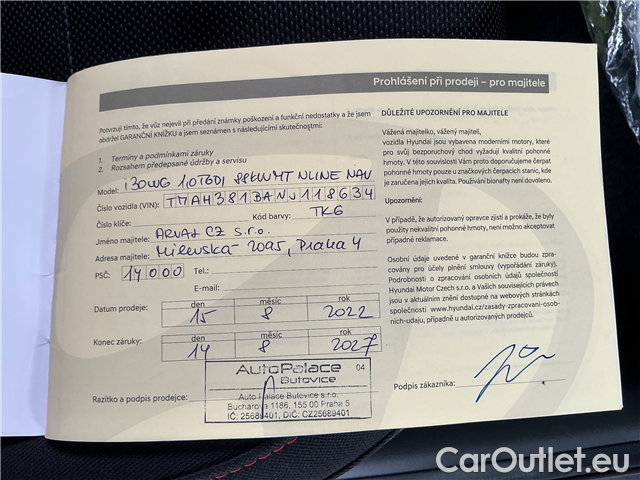 Prohlášení při prodeji – pro majitele
Potvrzuji tímto, že vůz nejevil při předání známky poškození a funkční nedostatky a že jsem
obdržel GARANČNÍ KNÍŽKU a jsem seznámen s následujícími skutečnostmi:
1. Termíny a podmínkami záruky
2. Rozsahem předepsané údržby a servisu
Model: i30WG 1,0TGDI 88KW MT NLINE NAV
Číslo vozidla (VIN): TMAH381BANJ118634
Číslo klíče: Kód barvy: TKG
Jméno majitele: ARVAL CZ s.r.o.
Adresa majitele: Milevská 2095, Praha 4
PSČ: 14000 Tel.:
E-mail:
Datum prodeje: den 15 měsíc 8 rok 2022
Konec záruky: den 14 měsíc 8 rok 2027
AutoPalace 04
Butovice
Auto Palace Butovice s.r.o.
Bucharova 1186, 155 00 Praha 5
IČ: 25689401, DIČ: CZ25689401
Razítko a podpis prodejce:
DŮLEŽITÉ UPOZORNĚNÍ PRO MAJITELE
Vážená majitelko, vážený majiteli,
vozidla Hyundai jsou vybavena moderními motory, které
pro svůj bezporuchový chod vyžadují kvalitní pohonné
hmoty. V této souvislosti Vám proto doporučujeme čerpat
pohonné hmoty pouze u značkových čerpacích stanic, kde
je zaručena jejich kvalita. Používání bionafty není dovoleno.
Upozornění:
V případě, že autorizovaný opravce zjistí a prokáže, že byly
použity nekvalitní pohonné hmoty, není možno akceptovat
případné reklamace.
Osobní údaje uvedené v garanční knížce budou zpra-
covány pro účely plnění smlouvy (vypořádání záruky).
Podrobnosti o zpracování osobních údajů společností
Hyundai Motor Czech s.r.o. a Vašich souvisejících právech
jsou v aktuálním znění dostupné na webových stránkách
společnosti www.hyundai.cz/zasady-zpracovani-osob-
nich-udaju, případně u autorizovaných prodejců.
Podpis zákazníka:
CarOutlet.eu